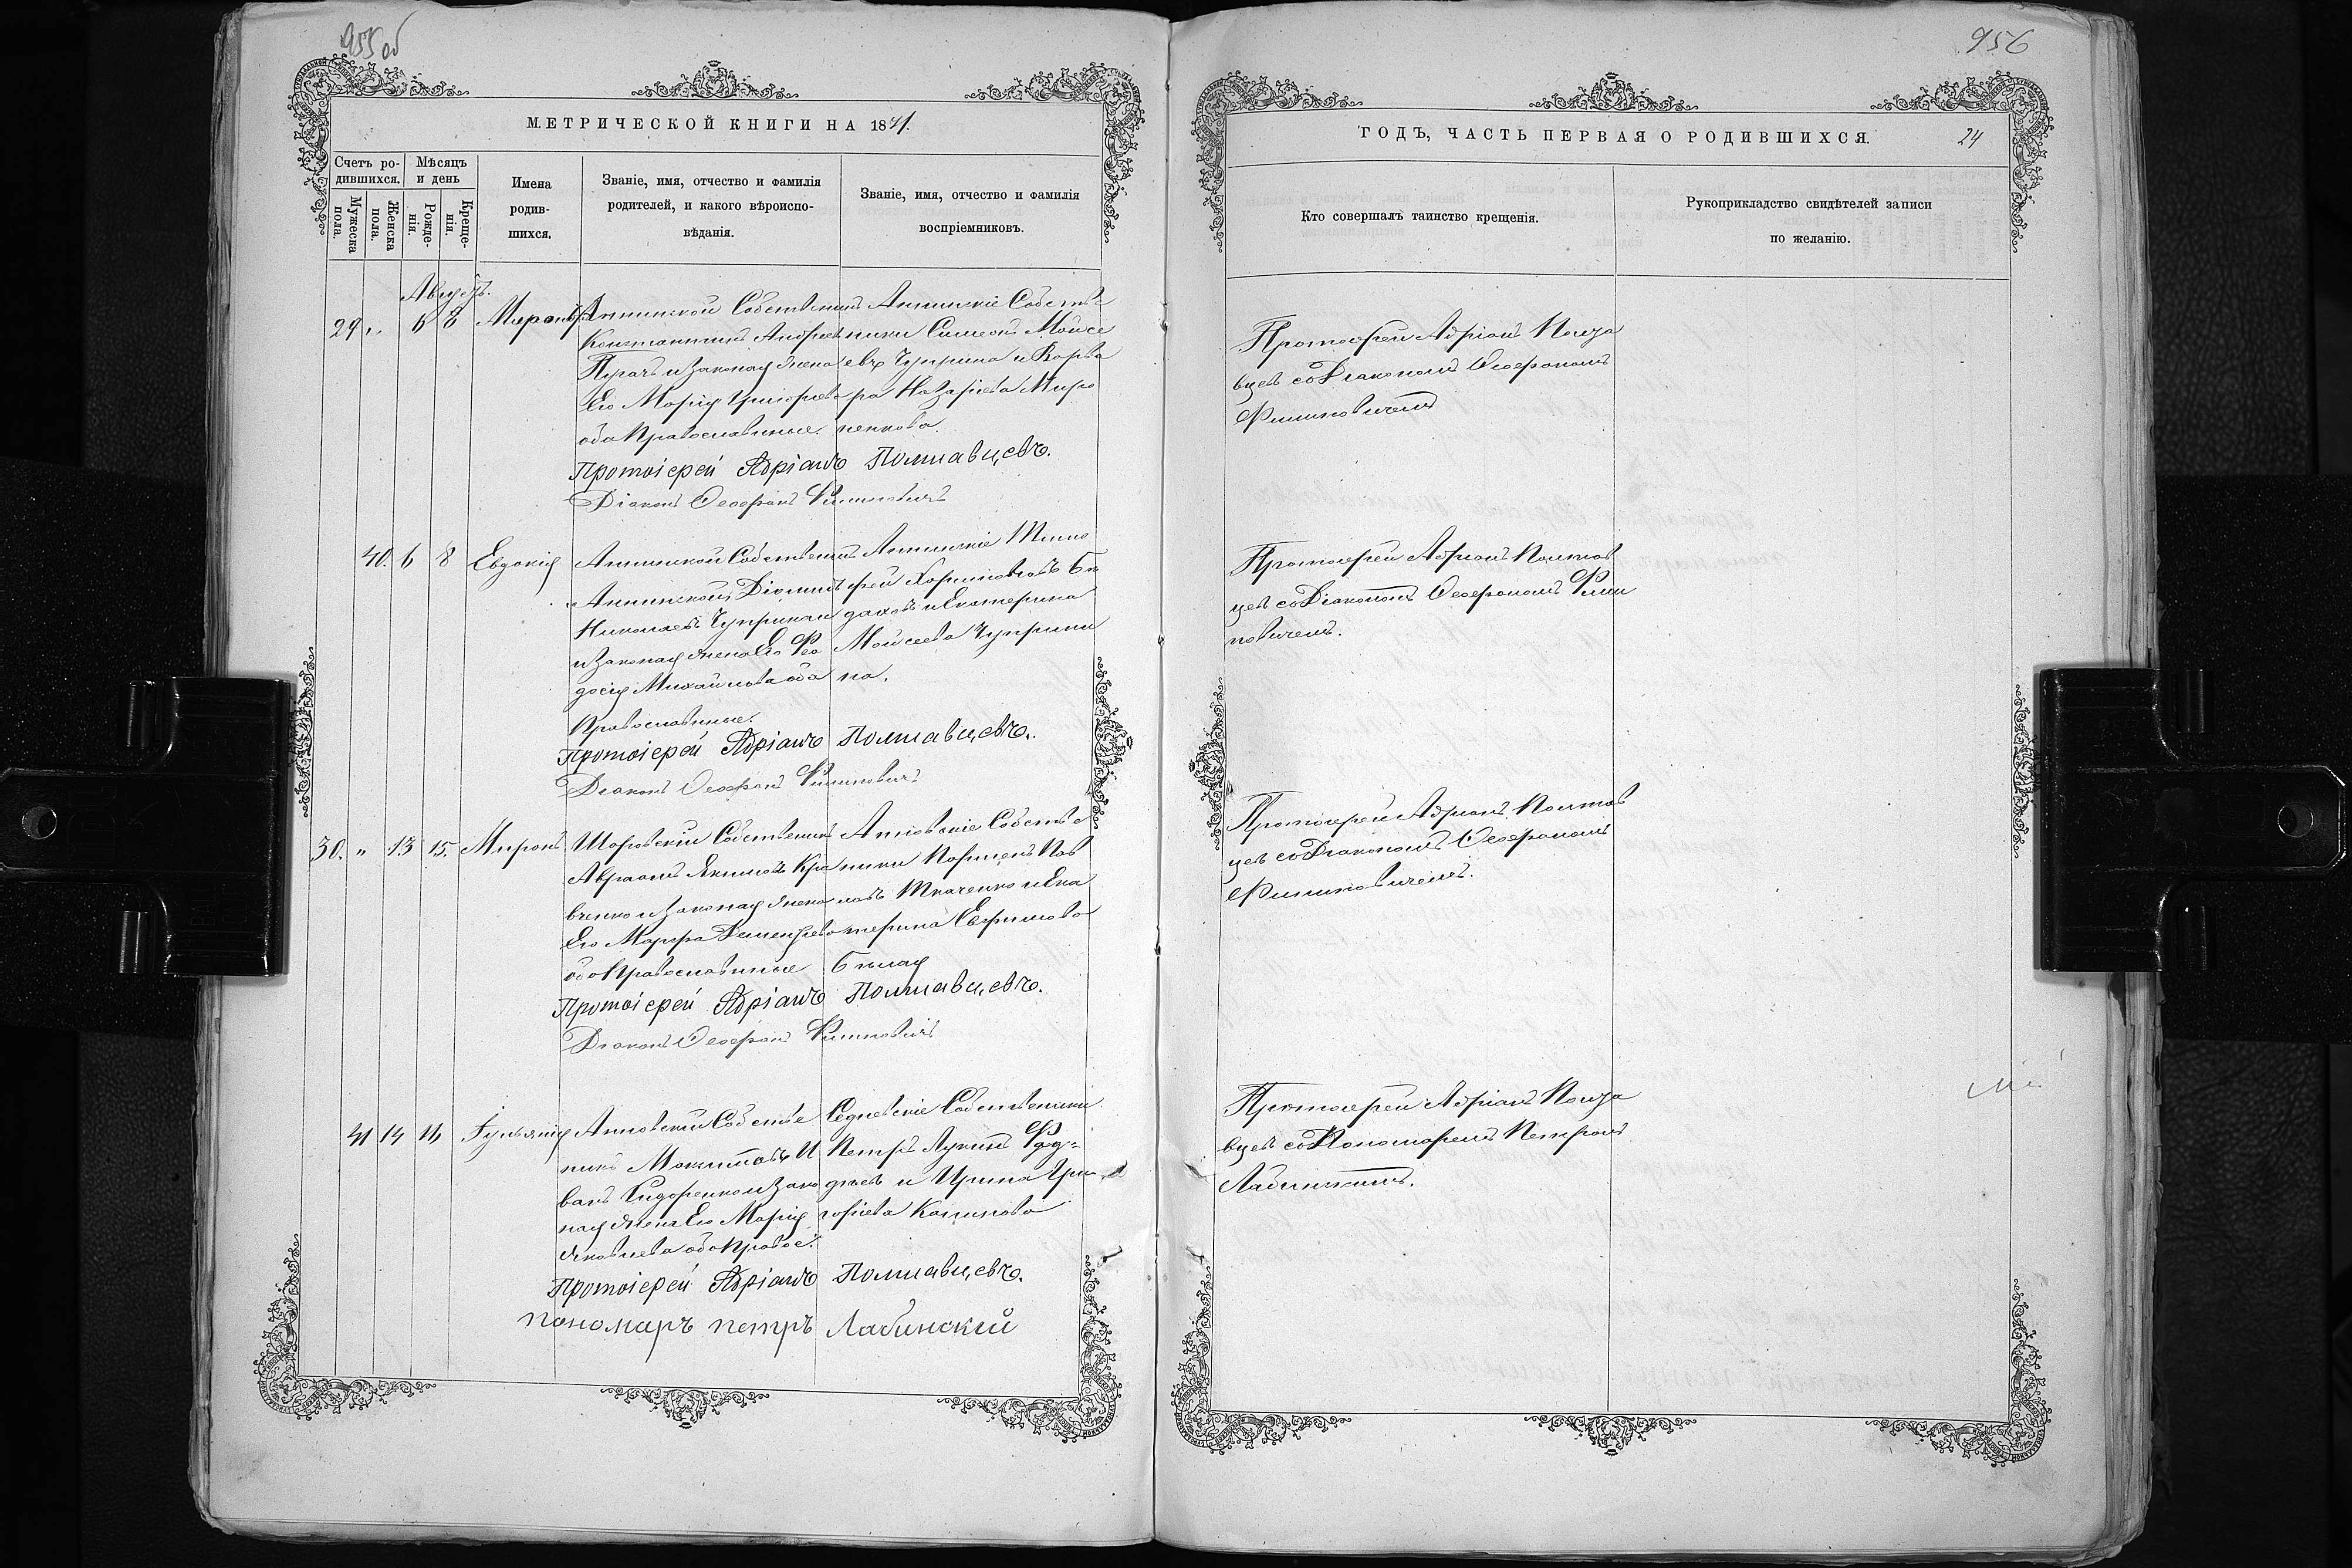 955 об
МЕТРИЧЕСКОЙ КНИГИ НА 1871.
Счетъ ро-
дившихся.
Мѣсяцъ
и день
Мужеска
пола.
Женска
пола.
Рожде-
нія.
Креще-
нія.
Имена
родив-
шихся.
Званіе, имя, отчество и фамилія
родителей, и какого вѣроиспо-
вѣданія.
Званіе, имя, отчество и фамилія
воспріемниковъ.
Августъ.
29 „ 6 8 Миронъ
Константинъ Андреев
и законая жена
Его Марія Григориева
оба православные.
Симеонъ Мойсе
евъ Чуприна и Варва
ра Назариева Миро
ненкова.
Протоіерей Адріанъ Полтавцевъ.
Діаконъ Феофанъ Филиповичъ
40. 6 8 Евдокія
Николаевъ Чуприна
и законая жена Его Фео
досія Михайлова оба
православные.
дахъ и Екатерина
Мойсеева Чуприни
на.
Протоіерей Адріанъ Полтавцевъ.
Діаконъ Феофанъ Филиповичъ
30. „ 13 15. Миронъ
Авраамъ Якимовъ Кра
вченко и законая жена
Его Марфа Дементиева
оба православные
ники Парменъ Пав
ловъ Ткаченко и Ека
терина Ефримова
Бѣлая
Протоіерей Адріанъ Полтавцевъ.
Діаконъ Феофанъ Филиповичъ
41 14 16 Іульянія
Анновскій Собстве
никъ И
ванъ Сидоренко и зако
ная жена Его Марія
Яковлева оба правос.
Седневскіе Собственики
Петръ Лукинъ Фад=
дѣевъ и Ирина Гри
горіева Калинова
Протоіерей Адріанъ Полтавцевъ.
пономаръ петръ Лабинскій
956
ГОДЪ, ЧАСТЬ ПЕРВАЯ О РОДИВШИХСЯ. 24
Кто совершалъ таинство крещенія.
Рукоприкладство свидѣтелей записи
по желанію.
Протоиерей Адріанъ Полта
вцев со Діакономъ Феофаномъ
Филиповичемъ
Протоиерей Адріанъ Полтав
цев со Діакономъ Феофаномъ Фили
повичемъ.
Протоиерей Адріанъ Полтав
цев со Діакономъ Феофаномъ
Филиповичемъ.
Протоиерей Адріанъ Полта
вцев со Пономаремъ Петромъ
Лабинскимъ.